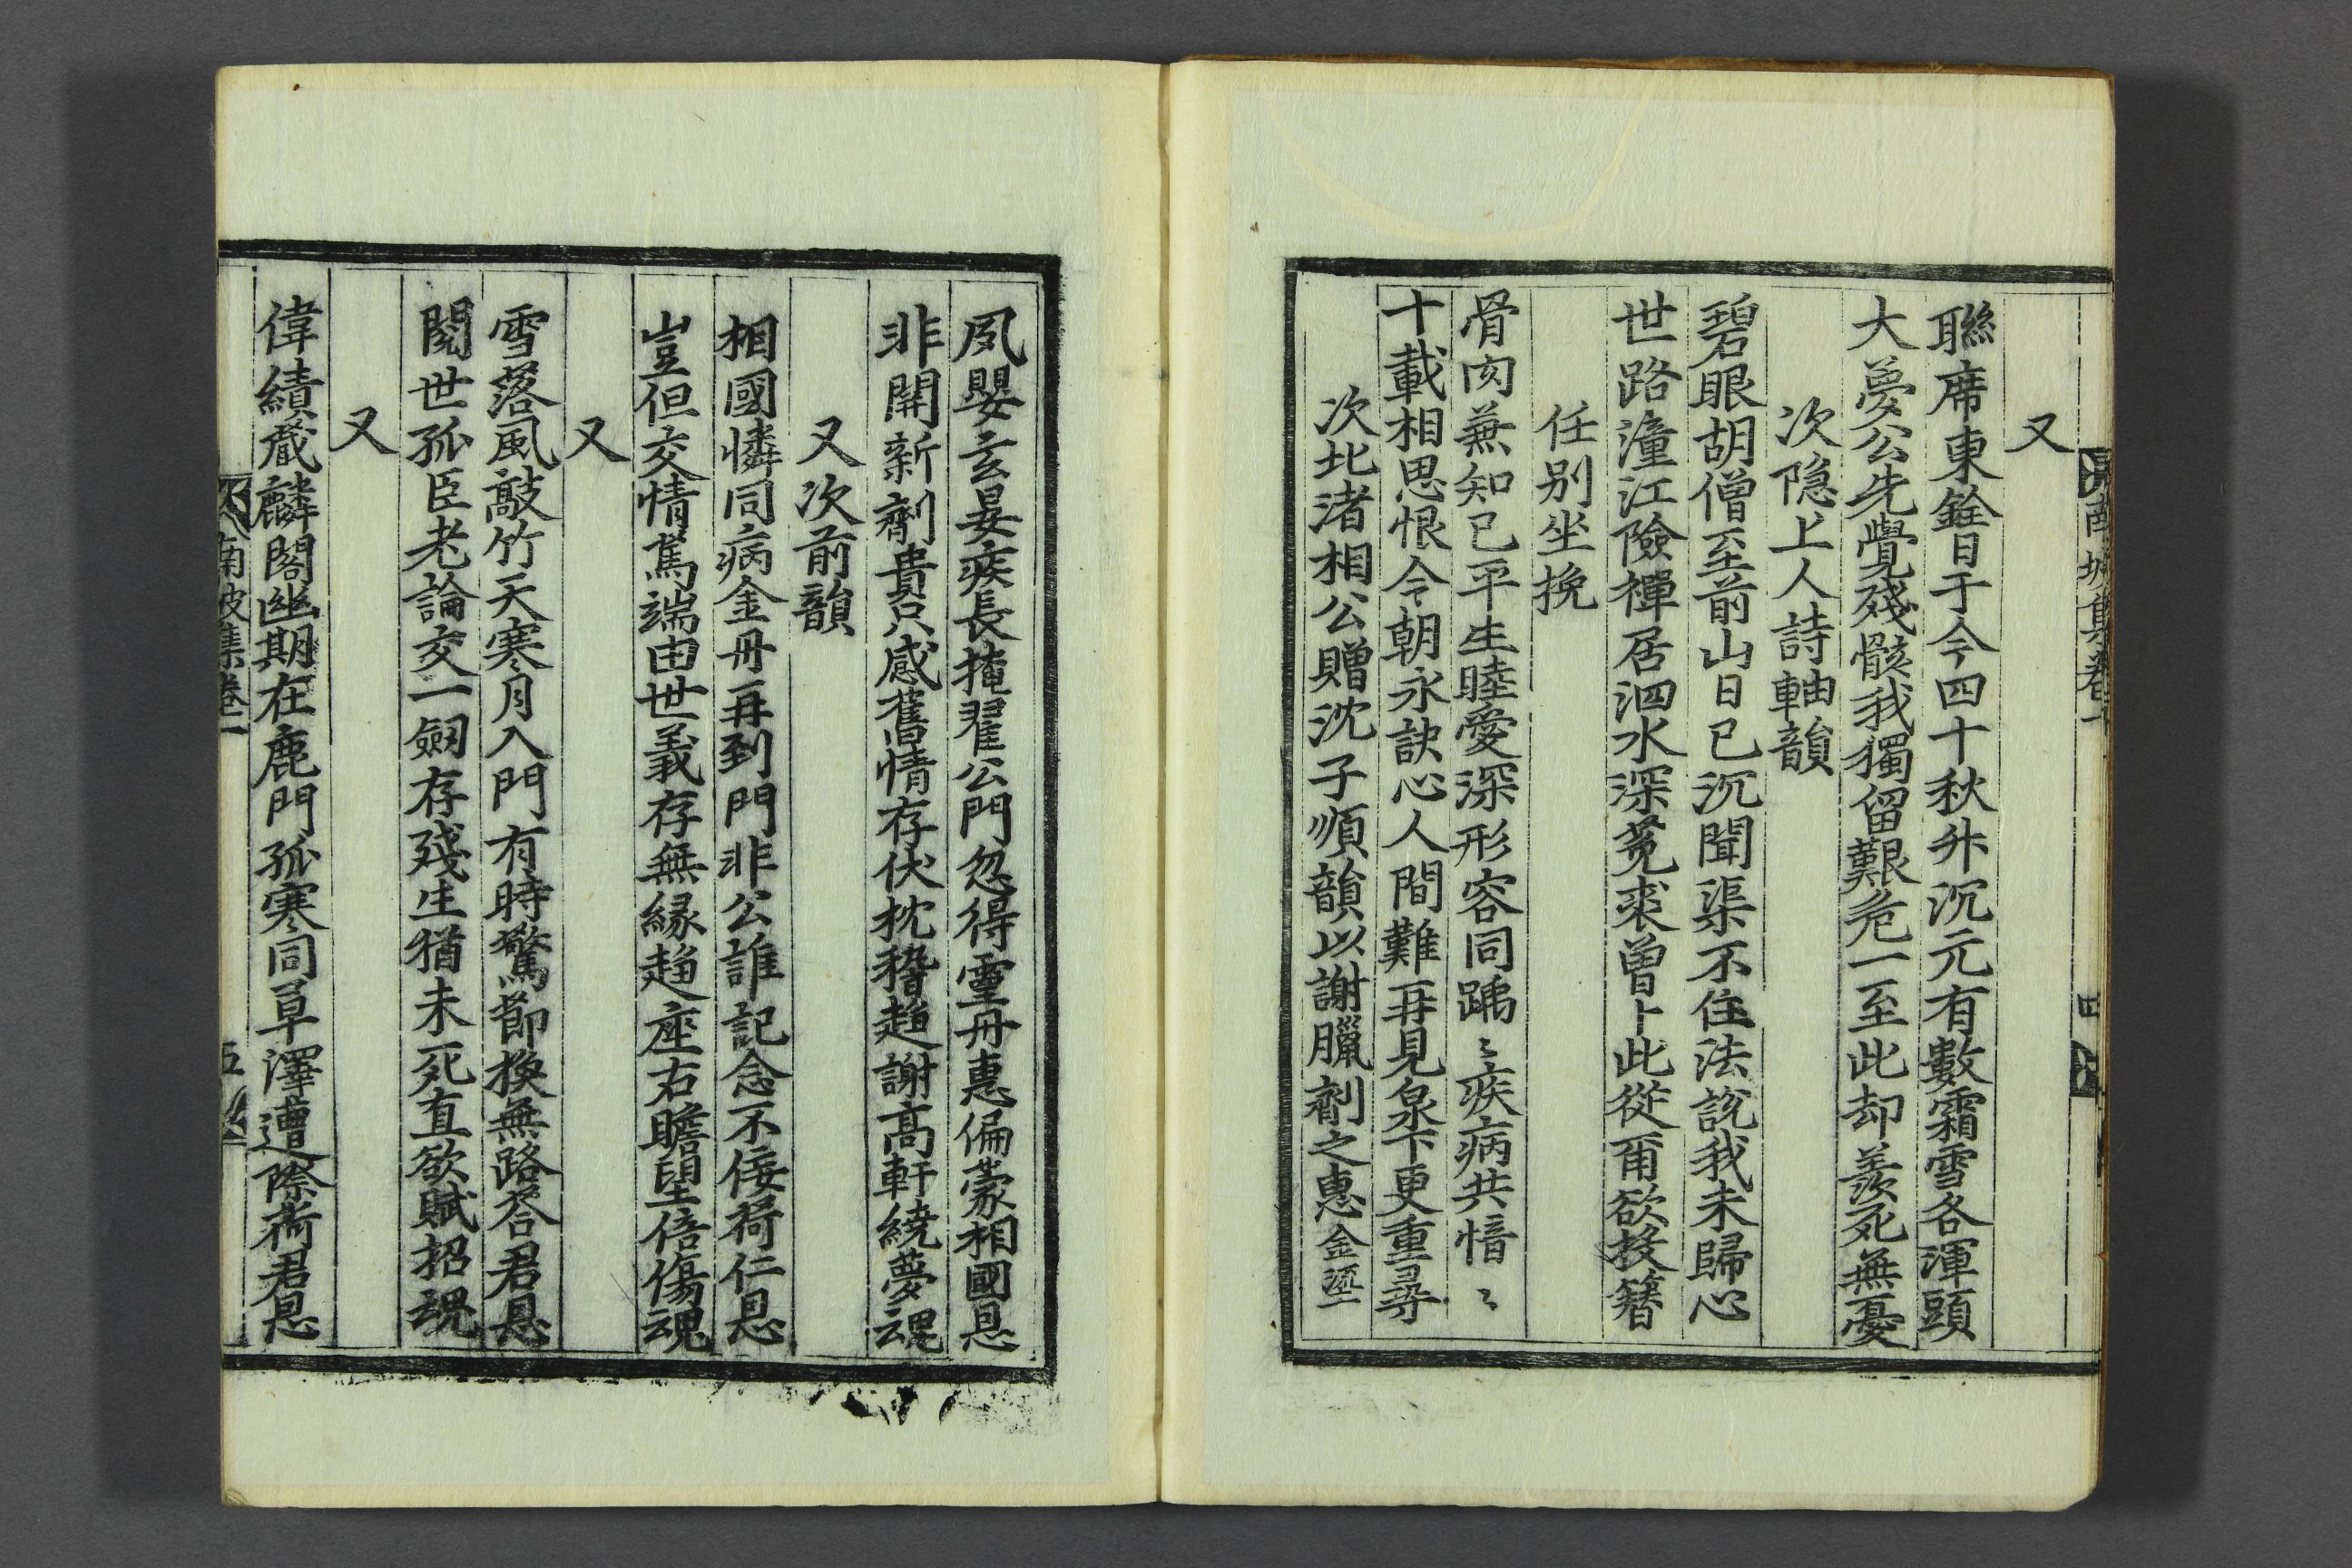 又
聯席東銓日于今四十秋升沉元有數霜雪各渾頭
大夢公先覺殘骸我獨留艱危一至此却羨死無憂
次隐上人詩軸韻
碧眼胡僧至前山日已沉聞渠不住法說我未歸心
世路潼江險禪居泗水深菟裘曾卜此從甭欲投簪
任别坐挽
骨肉兼知己平生睦愛深形容同踽〻疾病共愔〻
十載相思恨今朝永訣心人間難再見泉下更重尋
次北渚相公贈沈子順韻以謝臘劑之惠金瑬
夙嬰玄晏疾長掩翟公門忽得靈丹惠偏蒙相國恩
非關新劑貴只感舊情存伏枕稽趍謝高軒繞夢魂
又次前韻
相國憐同病金丹再到門非公誰記念不佞荷仁恩
豈但交情篤端由世義存無緣趍座右瞻望倍傷魂
又
雪落風敲竹天寒月入門有時驚節換無路答君恩
閱世孤臣老論交一劒存殘生猶未死直欲賦招魂
又
偉績蔵麟閣幽期在鹿門孤寒同草澤遭際荷君恩
南坡集卷一
五